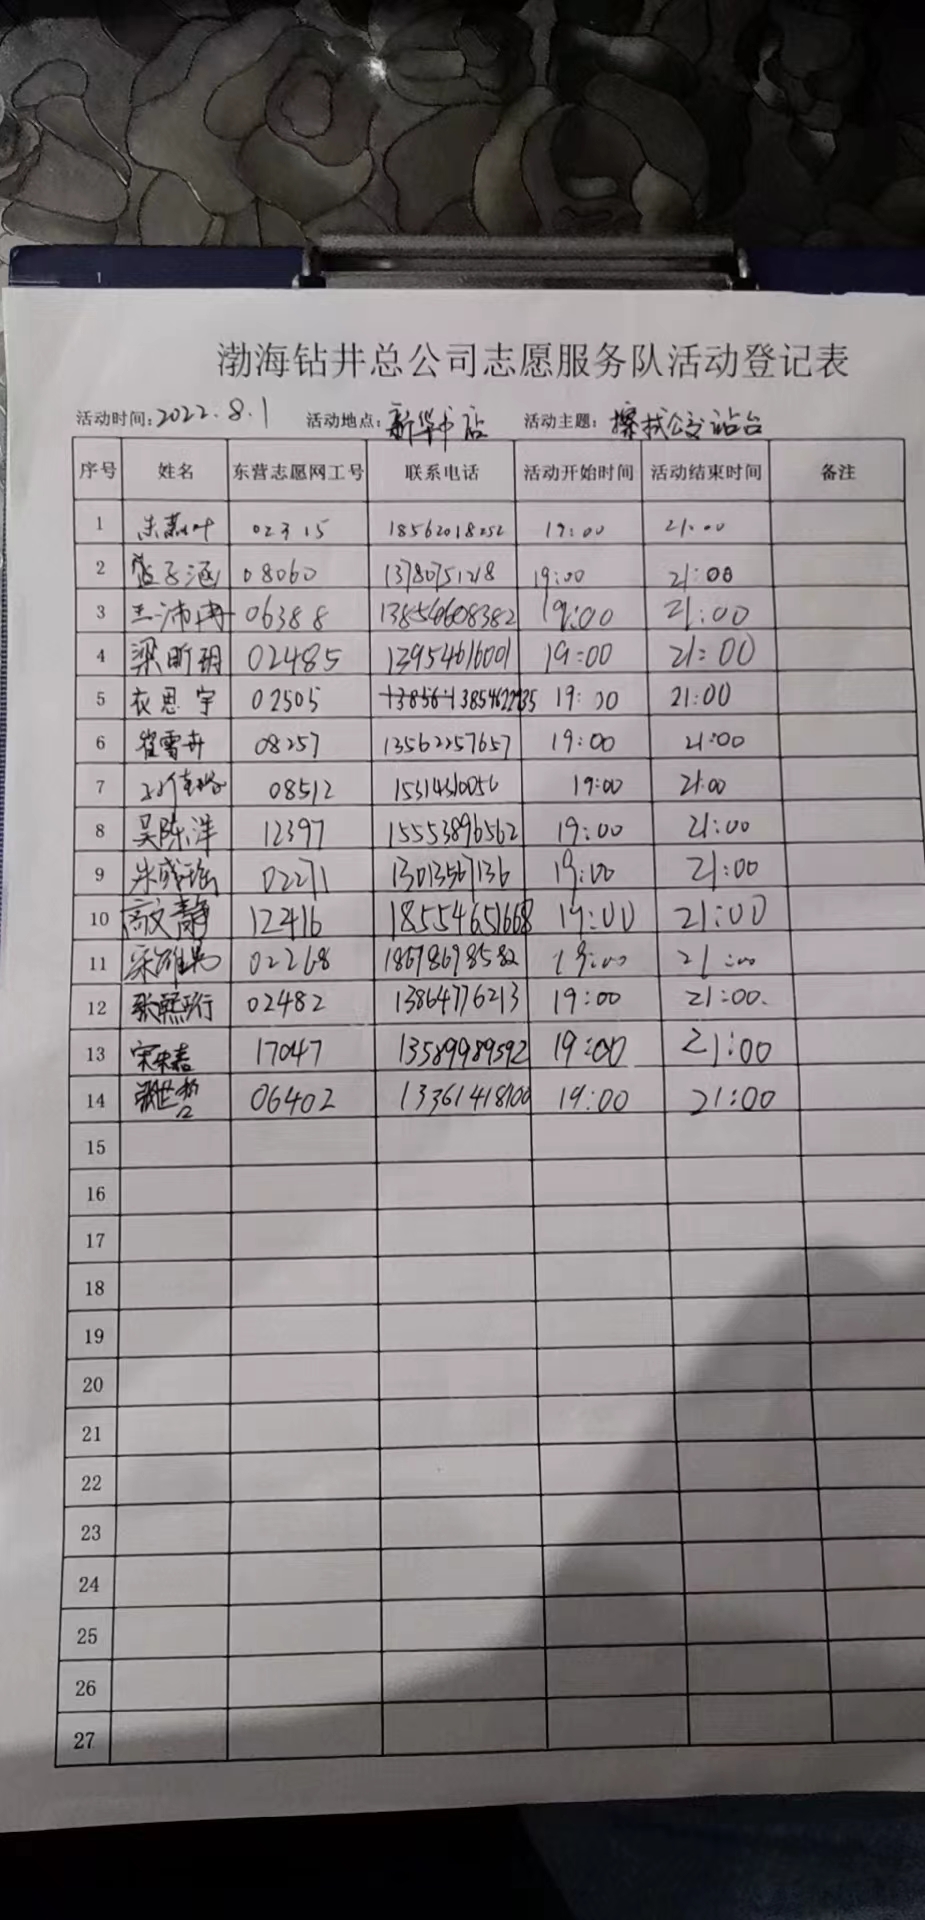 渤海钻井总公司志愿服务队活动登记表
活动时间:2022.8.1 活动地点:新华书店 活动主题:擦拭公交站台
序号 姓名 东营志愿网工号 联系电话 活动开始时间 活动结束时间 备注
1 02315 18562018252 19:00 21:00
2 子涵 08060 13780751218 19:00 21:00
3 王沛冉 06388 13854608382 19:00 21:00
4 梁昕玥 02485 13954616001 19:00 21:00
5 衣思宇 02505 19:00 21:00
6 崔雪卉 08257 13562257657 19:00 21:00
7 08512 19:00 21:00
8 吴陈洋 12397 15553896562 19:00 21:00
9 02271 13013567136 19:00 21:00
10 高文静 12416 18554651668 19:00 21:00
11 02268 18678698582 19:00 21:00
12 02482 13864776213 19:00 21:00.
13 17047 13589989592 19:00 21:00
14 张世哲 06402 13361418100 19:00 21:00
15
16
17
18
19
20
21
22
23
24
25
26
27